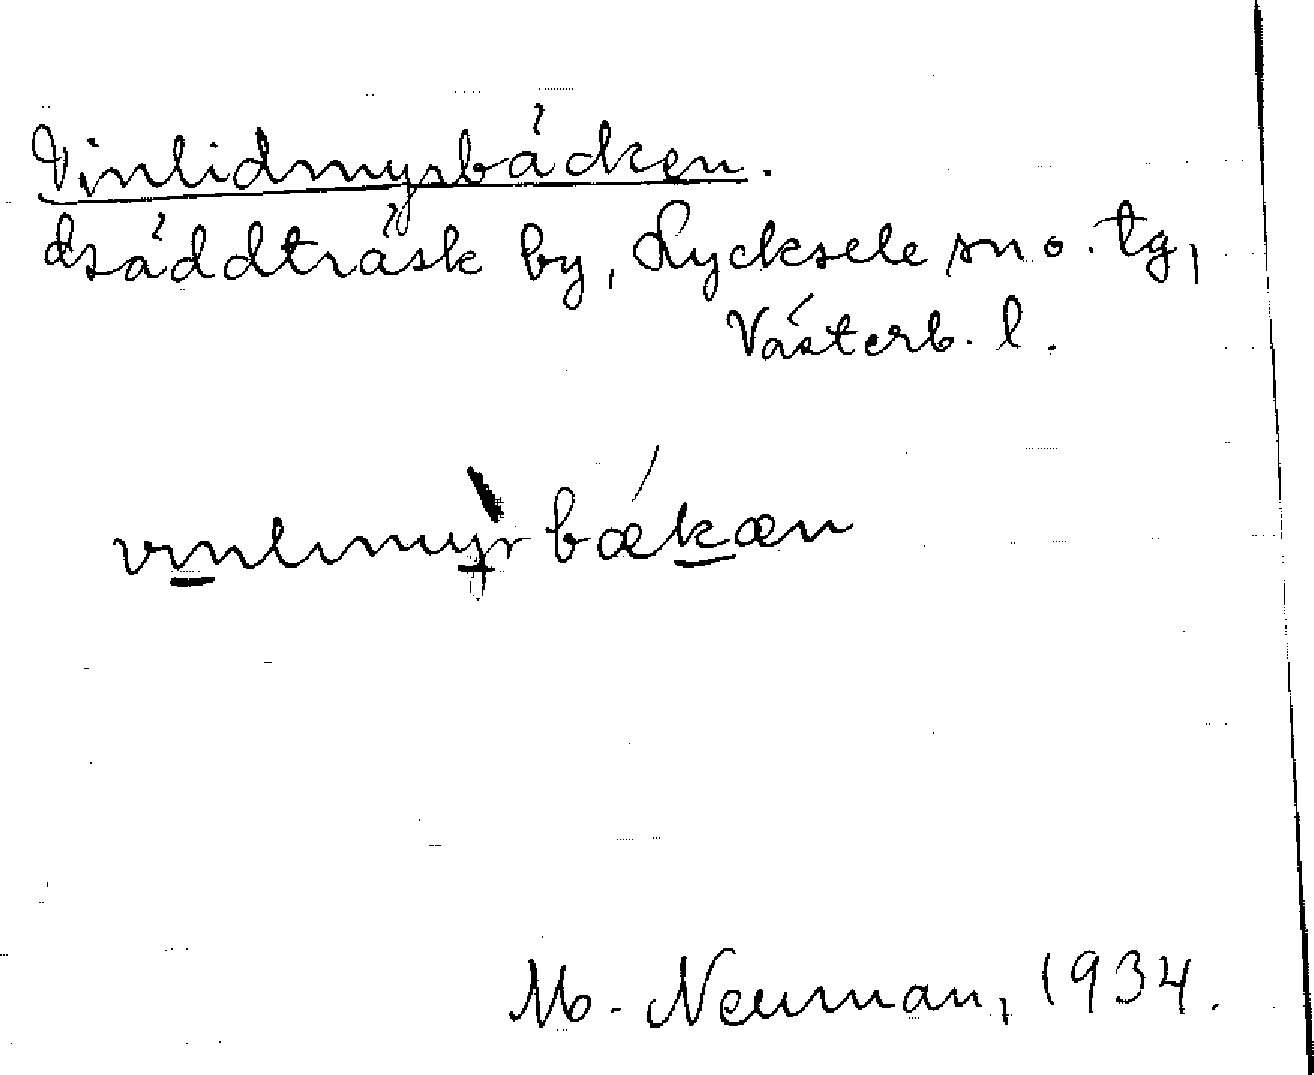 Vinlidmyrbäcken.
Bräddträsk by, Lycksele sn o. tg,
Västerb. l.
vɪnlɪmy̠r bækæn
M. Neuman, 1934.